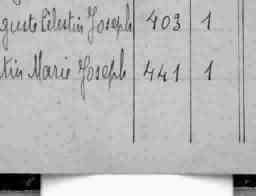 guste Célestin Joseph 403 1
tin Marie Joseph 441 1